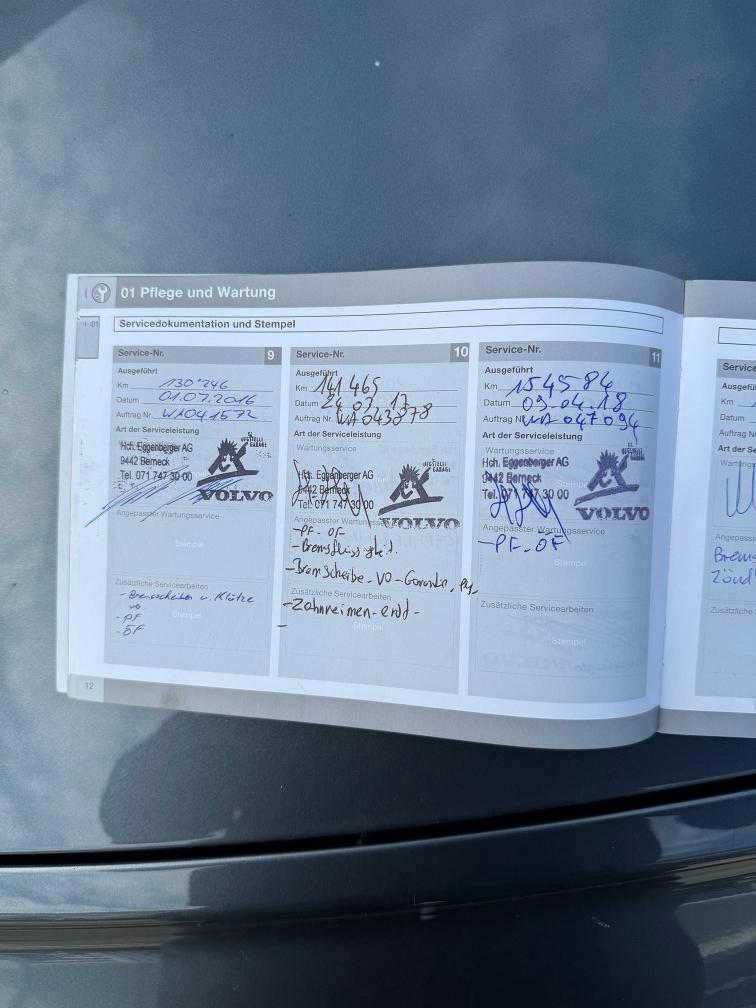 01 Pflege und Wartung
01
Servicedokumentation und Stempel
Service-Nr. 9
Ausgeführt
Km 130'246
Datum 01.07.2016
Auftrag Nr. WA041572
Art der Serviceleistung
Hch. Eggenberger AG
9442 Berneck
Tel. 071 747 30 00
GARAGE
VOLVO
Angepasster Wartungsservice
Stempel
Zusätzliche Servicearbeiten
- Bremsscheiben u. Klötze
vo.
- PF
- ÖF
Stempel
12
Service-Nr. 10
Ausgeführt
Km 141 465
Datum 24.03.17
Auftrag Nr. WA043878
Art der Serviceleistung
Wartungsservice
Hch. Eggenberger AG
9442 Berneck
Tel. 071 747 30 00
GARAGE
VOLVO
Angepasster Wartungsservice
- PF - ÖF
- Bremsscheibe - VO - Garantie
Zusätzliche Servicearbeiten
- Zahnreimen - ers
Stempel
Service-Nr. 11
Ausgeführt
Km 154584
Datum 09.04.18
Auftrag Nr. WA 047094
Art der Serviceleistung
Wartungsservice
Hch. Eggenberger AG
9442 Berneck
Tel. 071 747 30 00
GARAGE
VOLVO
Angepasster Wartungsservice
- PF - ÖF
Stempel
Zusätzliche Servicearbeiten
Stempel
Service
Ausgefü
Km
Datum
Auftrag N
Art der Se
Wartungs
Angepasst
Brems
Zünd
Zusätzliche